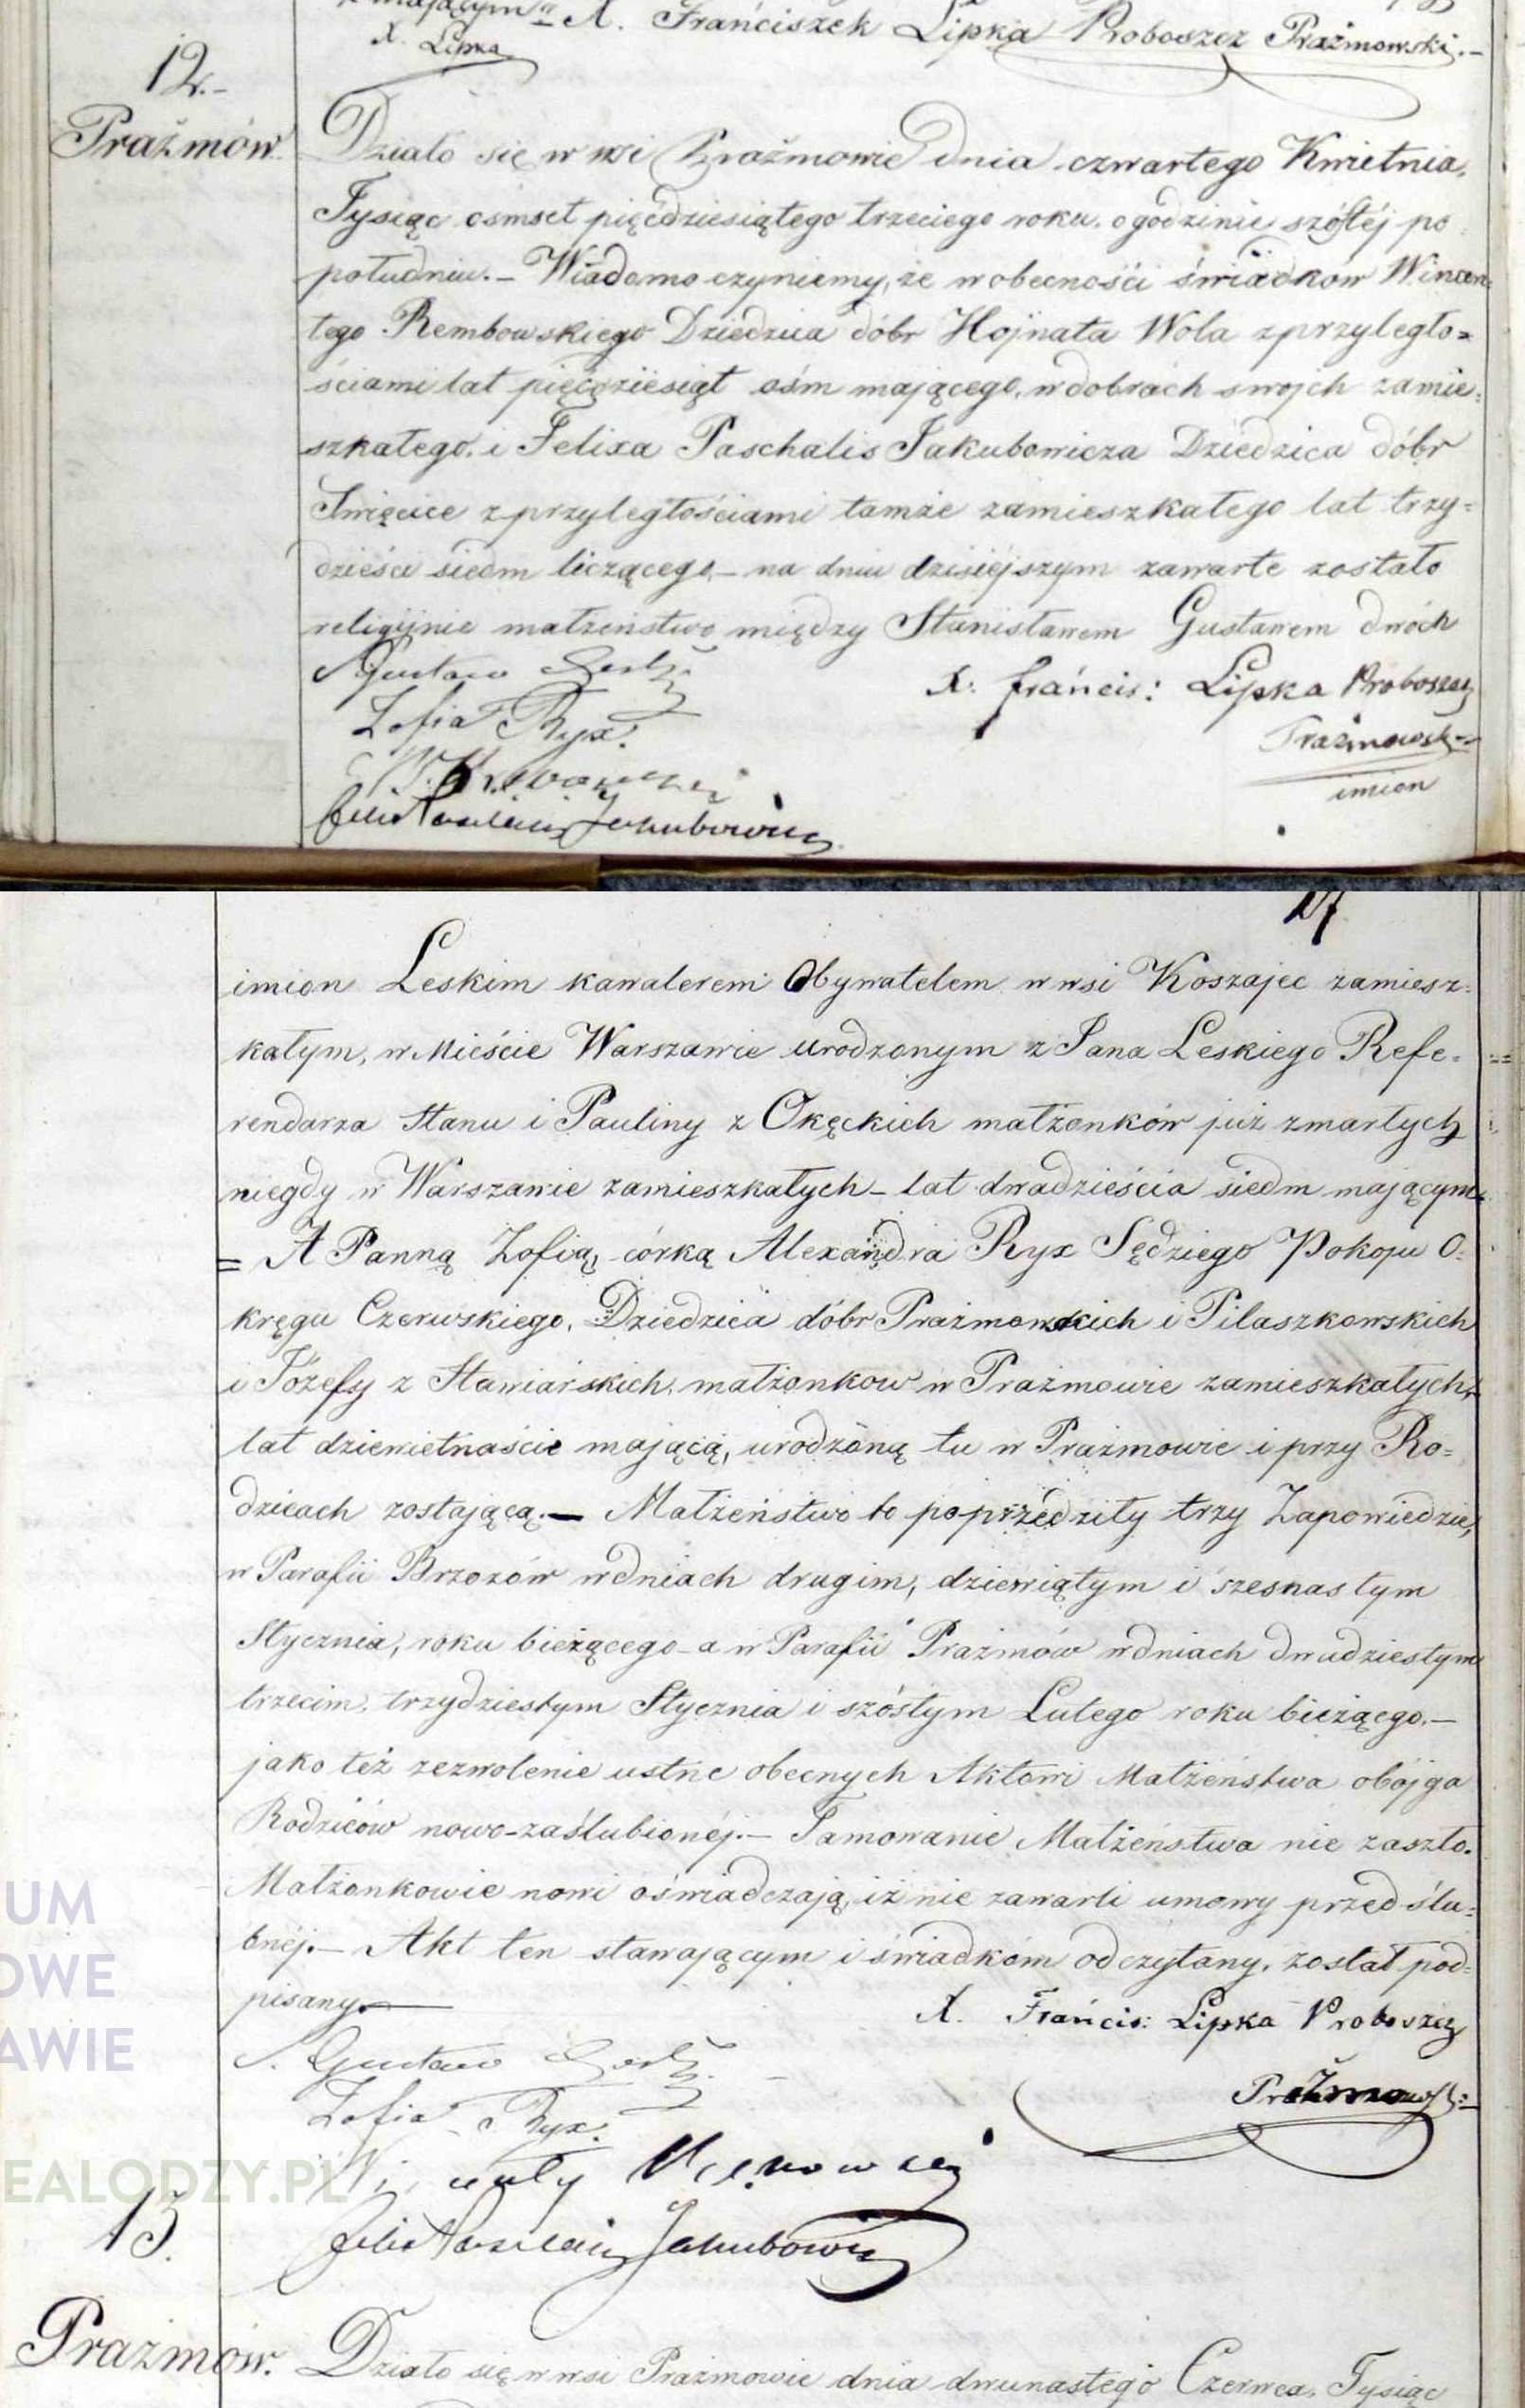 mającym X. Franciszek Lipka Proboszcz Prażmowski.-
X. Lipka
12.-
Prażmów.
Działo się w wsi Prażmowie dnia czwartego Kwietnia,
Tysiąc osmset pięćdziesiątego trzeciego roku, o godzinie szóstéj po
południu.- Wiadomo czyniemy, że w obecności świadkow Wincen-
tego Rembowskiego Dziedzica dóbr Hojnata Wola z przyległo=
ściami lat pięćdziesiąt ośm mającego, w dobrach swojch zamie-
szkałego, i Felixa Paschalis Jakubowicza Dziedzica dóbr
Święcice z przyległościami tamże zamieszkałego lat trzy=
dzieści siedm liczącego,- na dniu dzisiéjszym zawarte zostało
religijnie małżeństwo między Stanisławem Gustawem dwóch
S Gustaw Leski
X. Francis: Lipka Proboszcz
Zofia Ryx.
Prażmowski
imion
Felix Paschalis Jakubowicz
imion Leskim kawalerem Obywatelem w wsi Koszajec zamiesz-
kałym, w Mieście Warszawie urodzonym z Jana Leskiego Refe-
rendarza Stanu i Pauliny z Okęckich małżonków już zmarłych
niegdy w Warszawie zamieszkałych - lat dwadzieścia siedm mającym,
= A Panną Zofią, córką Alexandra Ryx Sędziego Pokoju O-
kręgu Czerwskiego, Dziedzica dóbr Prażmowskich i Pilaszkowskich
i Józefy z Stawiarskich, małżonkow w Prażmowie zamieszkałych,
lat dziewietnaście mającą, urodzoną tu w Prażmowie i przy Ro=
dzicach zostającą.— Małżeństwo to poprzedziły trzy Zapowiedzie,
w Parafii Brzozów w dniach drugim, dziewiątym i szesnastym
Stycznia, roku bieżącego - a w Parafii Prażmów w dniach dwudziestym
trzecim, trzydziestym Stycznia i szóstym Lutego roku bieżącego.—
jako też zezwolenie ustne obecnych Aktowi Małżeństwa obojga
Rodziców nowo-zaślubionéj.- Tamowanie Małżeństwa nie zaszło.
Małżonkowie nowi oświadczają, iż nie zawarli umowy przed ślu-
bnéj.- Akt ten stawającym i świadkom odczytany, został pod-
pisany.—
X. Francis: Lipka Proboszcz
S. Gustaw Leski
Prażmowski
Zofia Ryx.
Wincenty Rembowski
Felix Paschalis Jakubowicz
UM
OWE
AWIE
EALODZY.PL
13.
Prażmów.
Działo się w wsi Prażmowie dnia dwunastego Czerwca, Tysiąc